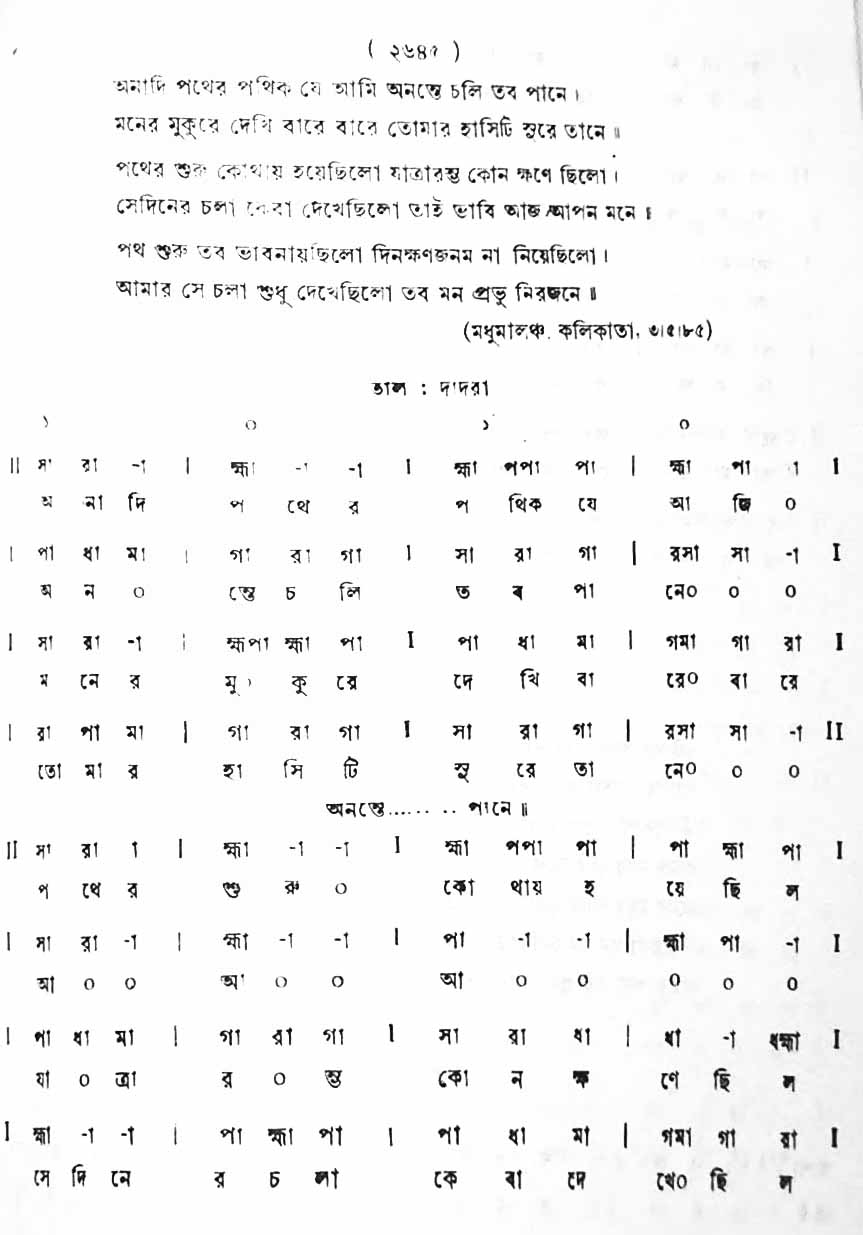 ( ২৬৪৭ )
অনাদি পথের পথিক যে আমি অনন্তে চলি তব পানে।
মনের মুকুরে দেখি বারে বারে তোমার হাসিটি সুরে তানে॥
পথের শুরু কোথায় হয়েছিলো যাত্রারম্ভ কোন ক্ষণে ছিলো।
সেদিনের চলা কেবা দেখেছিলো তাই ভাবি আজ আপন মনে॥
পথ শুরু তব ভাবনায়ছিলো দিনক্ষণজনম না নিয়েছিলো।
আমার সে চলা শুধু দেখেছিলো তব মন প্রভু নিরজনে॥
(মধুমালঞ্চ, কলিকাতা, ৩।৫।৮৫)
তাল : দাদরা
১ ০ ১ ০
II সা রা -া | হ্মা -া -া I হ্মা পপা পা | হ্মা পা া I
অ না দি প থে র প থিক যে আ জি ০
I পা ধা মা | গা রা গা I সা রা গা | রসা সা -া I
অ ন ০ ন্তে চ লি ত ব পা নে০ ০ ০
I সা রা -া | হ্মপা হ্মা পা I পা ধা মা | গমা গা রা I
ম নে র মু ০ কু রে দে খি বা রে০ বা রে
I রা পা মা | গা রা গা I সা রা গা | রসা সা -া II
তো মা র হা সি টি সু রে তা নে০ ০ ০
অনন্তে...... .. পানে॥
II সা রা া | হ্মা -া -া I হ্মা পপা পা | পা হ্মা পা I
প থে র শু রু ০ কো থায় হ য়ে ছি ল
I সা রা -া | হ্মা -া -া I পা -া -া | হ্মা পা -া I
আ ০ ০ আ ০ ০ আ ০ ০ ০ ০ ০
I পা ধা মা | গা রা গা I সা রা ধা | ধা -া ধহ্মা I
যা ০ ত্রা র ০ ম্ভ কো ন ক্ষ ণে ছি ল
I হ্মা -া -া | পা হ্মা পা I পা ধা মা | গমা গা রা I
সে দি নে র চ লা কে বা দে খে০ ছি ল